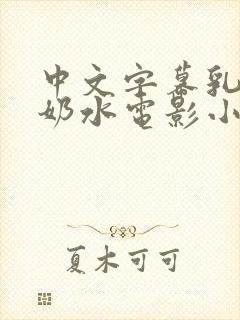 中文字幕乳
奶水电影小
夏木可可